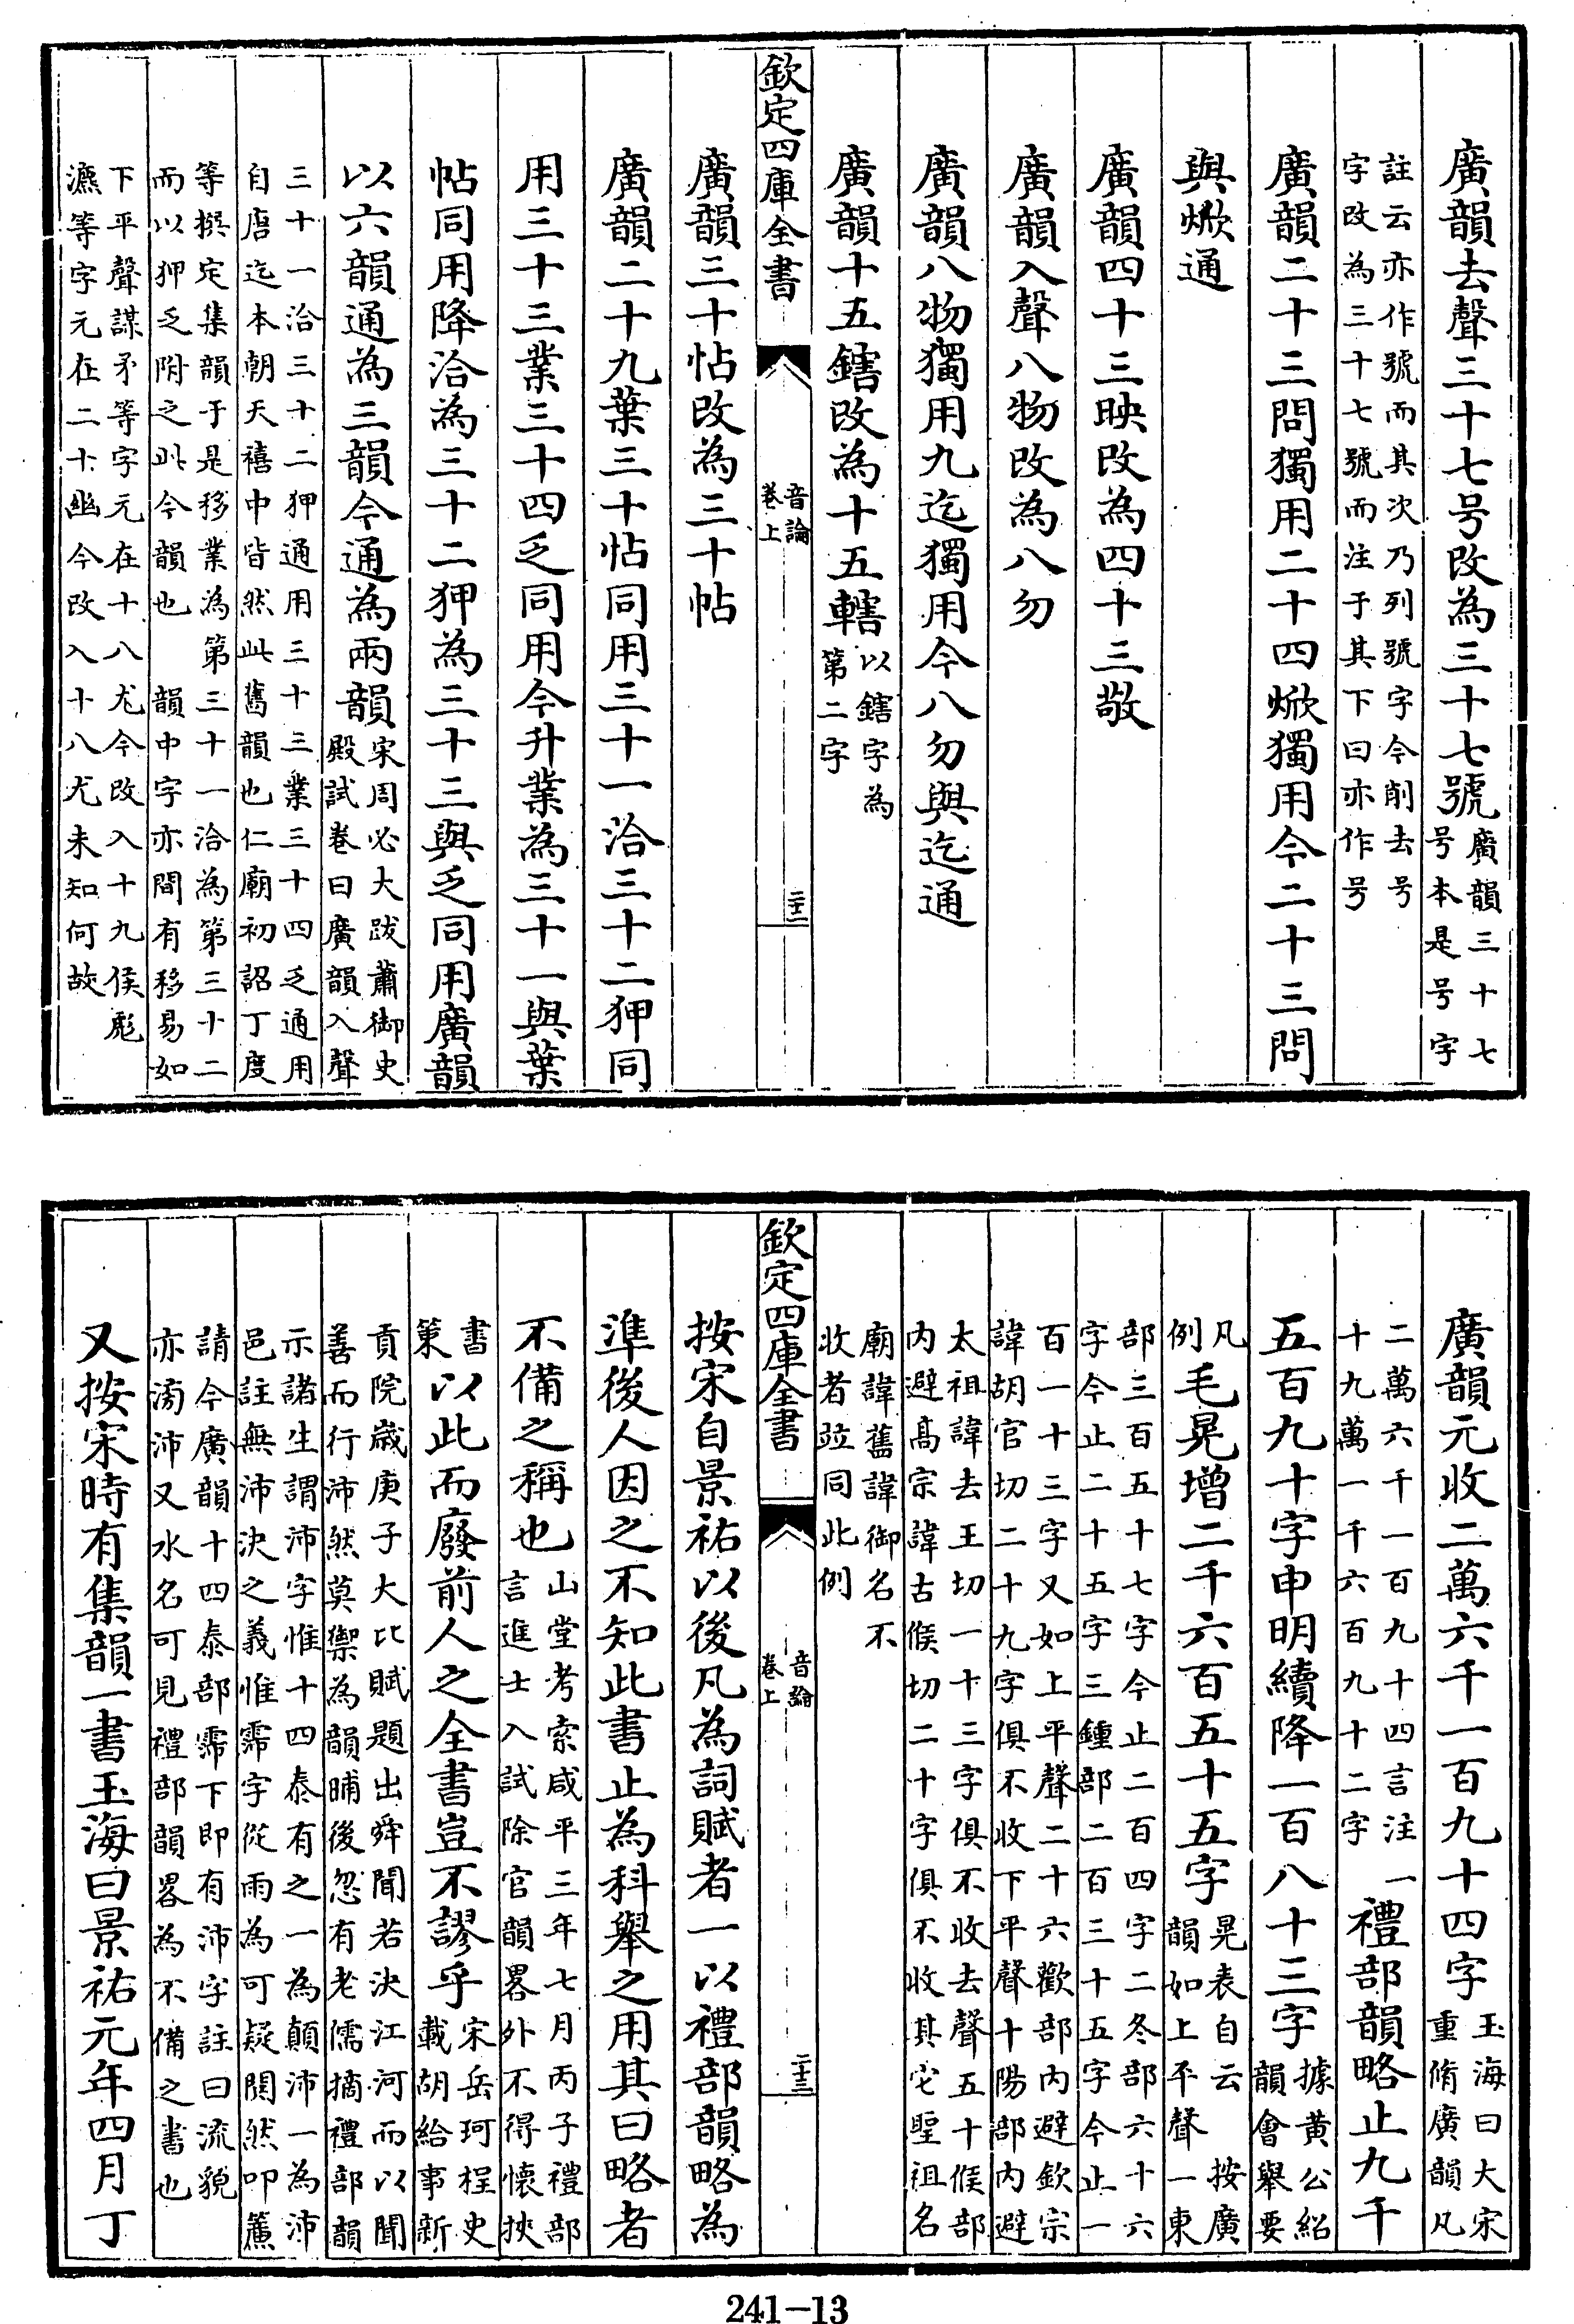 廣韻去聲三十七号改為三十七號廣韻三十七号本是号字
註云亦作號而其次乃列號字今削去号
字改為三十七號而注于其下曰亦作号
廣韻二十三問獨用二十四焮獨用今二十三問
與焮通
廣韻四十三映改為四十三敬
廣韻入聲八物改為八勿
廣韻八物獨用九迄獨用今八勿與迄通
廣韻十五鎋改為十五轄以鎋字為第二字
欽定四庫全書 音論卷上 二十二
廣韻三十怗改為三十帖
廣韻二十九葉三十帖同用三十一洽三十二狎同
用三十三業三十四乏同用今升業為三十一與葉
帖同用降洽為三十二狎為三十三與乏同用廣韻
以六韻通為三韻今通為兩韻宋周必大跋蕭御史殿試卷曰廣韻入聲
三十一洽三十二狎通用三十三業三十四乏通用
自唐迄本朝天禧中皆然此舊韻也仁廟初詔丁度
等撰定集韻于是移業為第三十一洽為第三十二
而以狎乏附之此今韻也 韻中字亦間有移易如
下平聲謀矛等字元在十八尤今改入十九侯彪
瀌等字元在二十幽今改入十八尤未知何故
廣韻元收二萬六千一百九十四字玉海曰大宋重脩廣韻凡
二萬六千一百九十四言注一十九萬一千六百九十二字禮部韻略止九千
五百九十字申明續降一百八十三字據黄公紹韻會舉要
凡例毛晃增二千六百五十五字晃表自云 按廣韻如上平聲一東
部三百五十七字今止二百四字二冬部六十六
字今止二十五字三鍾部二百三十五字今止一
百一十三字又如上平聲二十六歡部内避欽宗
諱胡官切二十九字俱不收下平聲十陽部内避
太祖諱去王切一十三字俱不收去聲五十候部
内避髙宗諱古候切二十字俱不收其它聖祖名
廟諱舊諱御名不
收者竝同此例
欽定四庫全書 音論卷上 二十三
按宋自景祐以後凡為詞賦者一以禮部韻略為
準後人因之不知此書止為科舉之用其曰略者
不備之稱也山堂考索咸平三年七月丙子禮部言進士入試除官韻畧外不得懷挾
書策以此而廢前人之全書豈不謬乎宋岳珂桯史載胡給事新
貢院嵗庚子大比賦題出舜聞若決江河而以聞
善而行沛然莫禦為韻晡後忽有老儒摘禮部韻
示諸生謂沛字惟十四泰有之一為顛沛一為沛
邑註無沛決之義惟霈字從雨為可疑関然叩簾
請今廣韻十四泰部霈下即有沛字註曰流貌
亦㴐沛又水名可見禮部韻畧為不備之書也
又按宋時有集韻一書玉海曰景祐元年四月丁
241-13